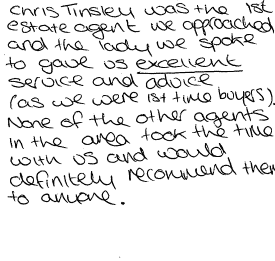 Chris Tinsley was the 1st
estate agent we approached
and the lady we spoke
to gave us excellent
service and advice
(as we were 1st time buyers).
None of the other agents
in the area took the time
with us and would
definitely recommend them
to anyone.